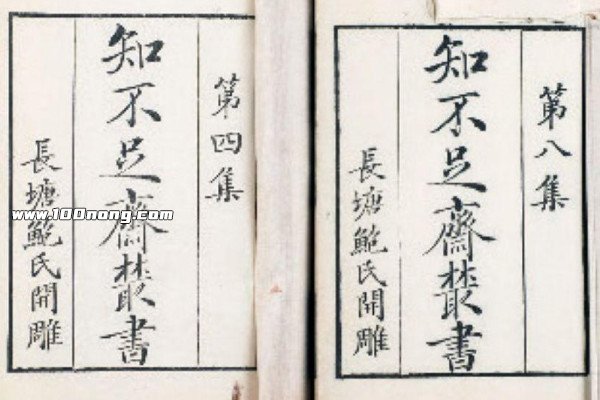 第四集
知不足齋叢書
長塘鮑氏開雕
第八集
知不足齋叢書
長塘鮑氏開雕
www.100nong.com